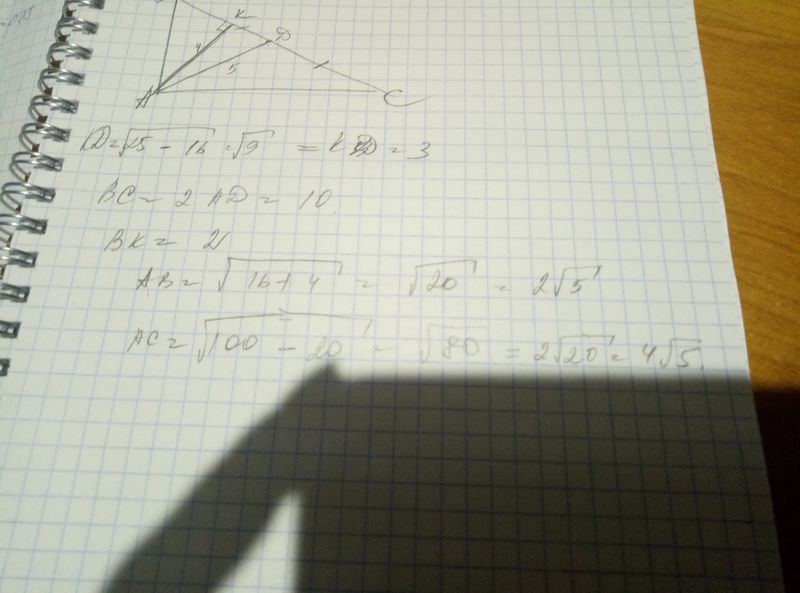 K
D
4
5
A
C
KD=√25 - 16 = √9 = KD = 3
BC = 2 AD = 10.
BK = 2
AB = √16 + 4 = √20 = 2√5
AC = √100 - 20 = √80 = 2√20 = 4√5.